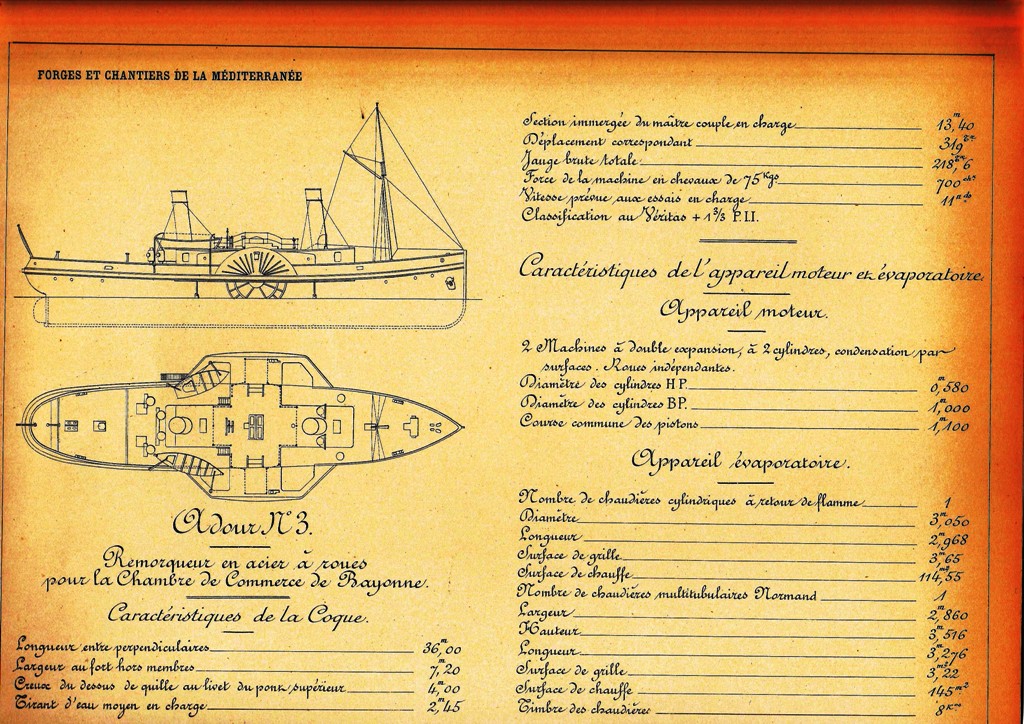 FORGES ET CHANTIERS DE LA MÉDITERRANÉE
Adour N° 3.
Remorqueur en acier à roues
pour la Chambre de Commerce de Bayonne.
Caractéristiques de la Coque.
Longueur entre perpendiculaires 36,m00
Largeur au fort hors membres 7,m20
Creux du dessus de quille au livet du pont supérieur 4,m00
Tirant d'eau moyen en charge 2,m45
Section immergée du maître couple en charge 13,m40
Déplacement correspondant 319tx
Jauge brute totale 218,tx6
Force de la machine en chevaux de 75Kgs 700chx
Vitesse prévue aux essais en charge 11nds
Classification au Véritas + 1 3/3 P.II.
Caractéristiques de l'appareil moteur et évaporatoire.
Appareil moteur.
2 Machines à double expansion, à 2 cylindres, condensation par
surfaces. Roues indépendantes.
Diamètre des cylindres H P. 0,m580
Diamètre des cylindres BP. 1,m000
Course commune des pistons 1,m100
Appareil évaporatoire.
Nombre de chaudières cylindriques à retour de flamme 1
Diamètre 3,m050
Longueur 2,m968
Surface de grille 3,m²65
Surface de chauffe 114,m²55
Nombre de chaudières multitubulaires Normand 1
Largeur 2,m860
Hauteur 3,m516
Longueur 3,m276
Surface de grille 3,m²22
Surface de chauffe 145m²
Timbre des chaudières 8Kos